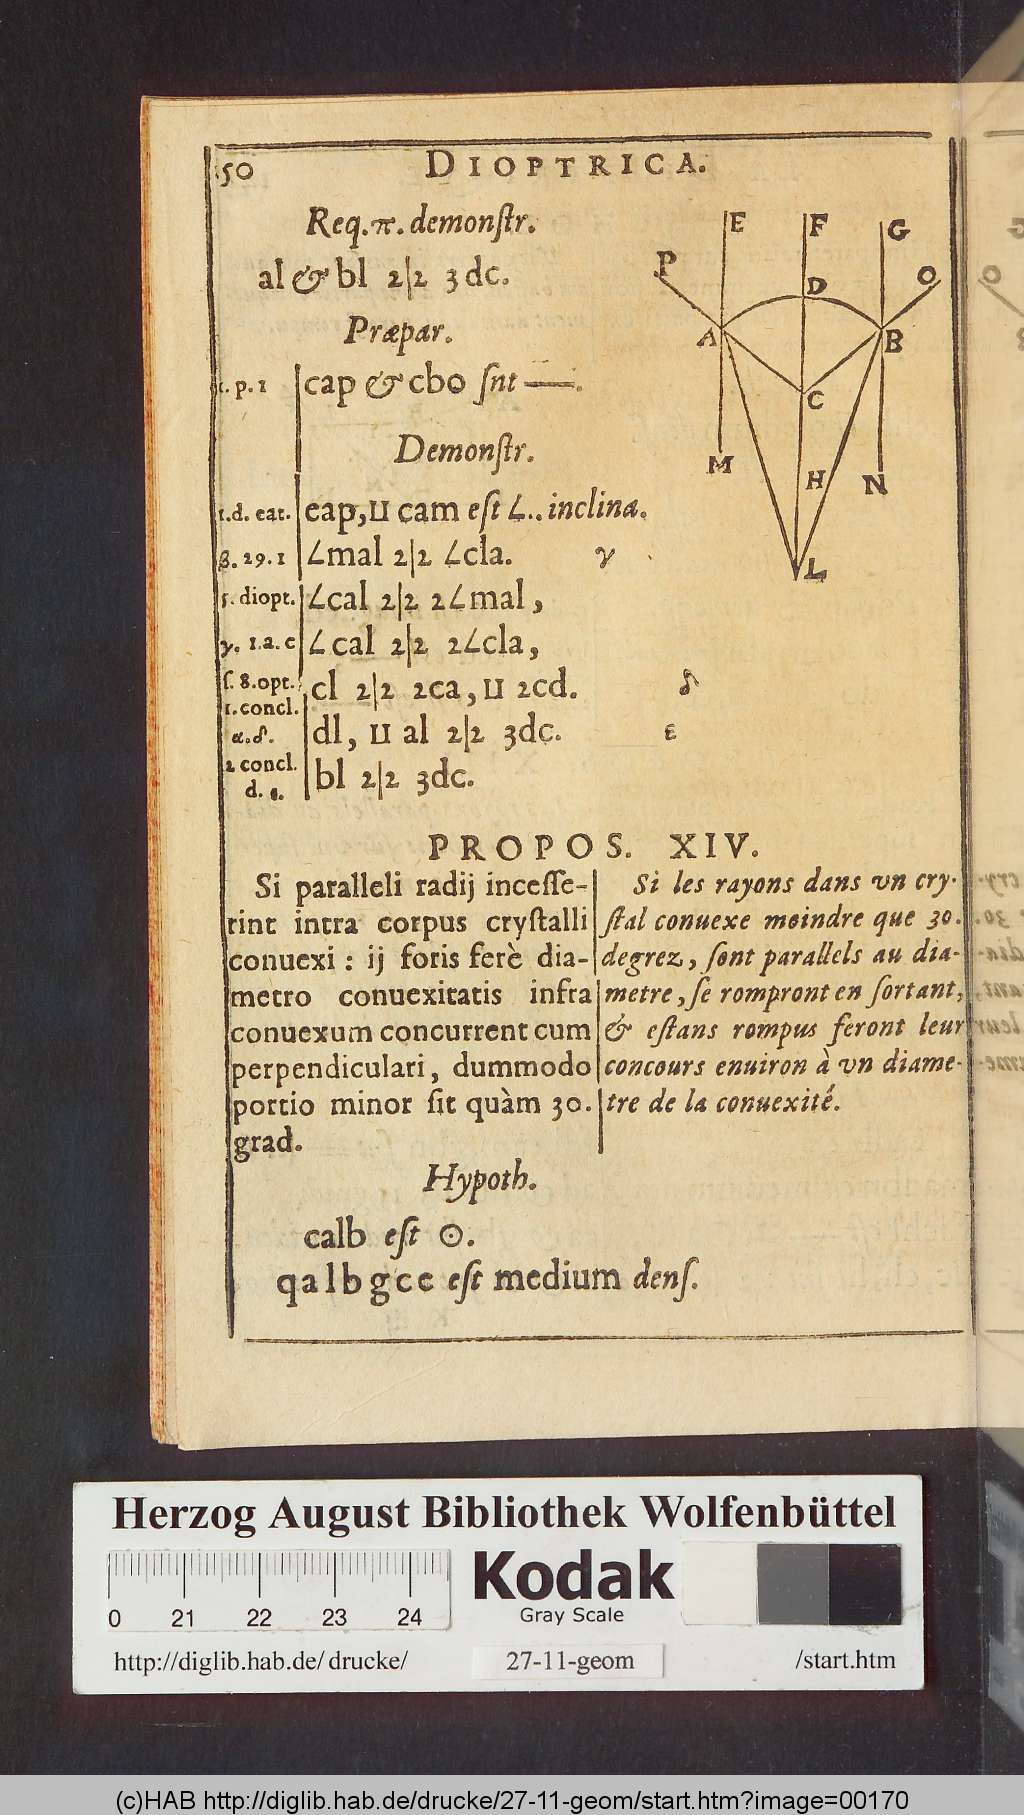 50 DIOPTRICA.
Req. π. demonſtr.
al & bl 2|2 3dc.
Præpar.
1. p. 1 cap & cbo ſnt —.
Demonſtr.
1.d. eat. eap, ⊔ cam eſt ∠.. inclina.
β. 29. 1 ∠mal 2|2 ∠cla. γ
5. diopt. ∠cal 2|2 2∠mal,
γ. 1.a. c ∠cal 2|2 2∠cla,
ſ. 8.opt. cl 2|2 2ca, ⊔ 2cd. δ
1.concl.
α.δ. dl, ⊔ al 2|2 3dc. ε
2 concl. bl 2|2 3dc.
E F G
P D O
A B
C
M H N
L
PROPOS. XIV.
Si paralleli radij inceſſe-
rint intra corpus cryſtalli
conuexi : ij foris ferè dia-
metro conuexitatis infra
conuexum concurrent cum
perpendiculari, dummodo
portio minor ſit quàm 30.
grad.
Si les rayons dans vn cry-
ſtal conuexe moindre que 30.
degrez, ſont parallels au dia-
metre, ſe rompront en ſortant,
& eſtans rompus feront leur
concours enuiron à vn diame-
tre de la conuexité.
Hypoth.
calb eſt ⊙.
qalbgce eſt medium denſ.
Herzog August Bibliothek Wolfenbüttel
Kodak
Gray Scale
0 21 22 23 24
http://diglib.hab.de/ drucke/ 27-11-geom /start.htm
(c)HAB http://diglib.hab.de/drucke/27-11-geom/start.htm?image=00170